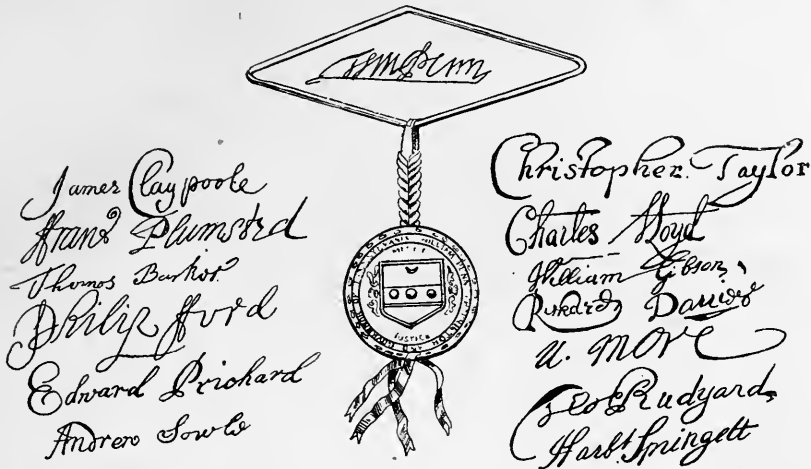 Wm Penn
James Claypoole
ffranς Plumsted
Thomas Barker
Philip fford
Edward Prichard
Andrew Sowle
MERCY
JUSTICE
WILLIAM PENN
Christopher Taylor
Charles Lloyd
William Gibson
Richard Davies
N. More
Geo Rudyard
Harbt Springett